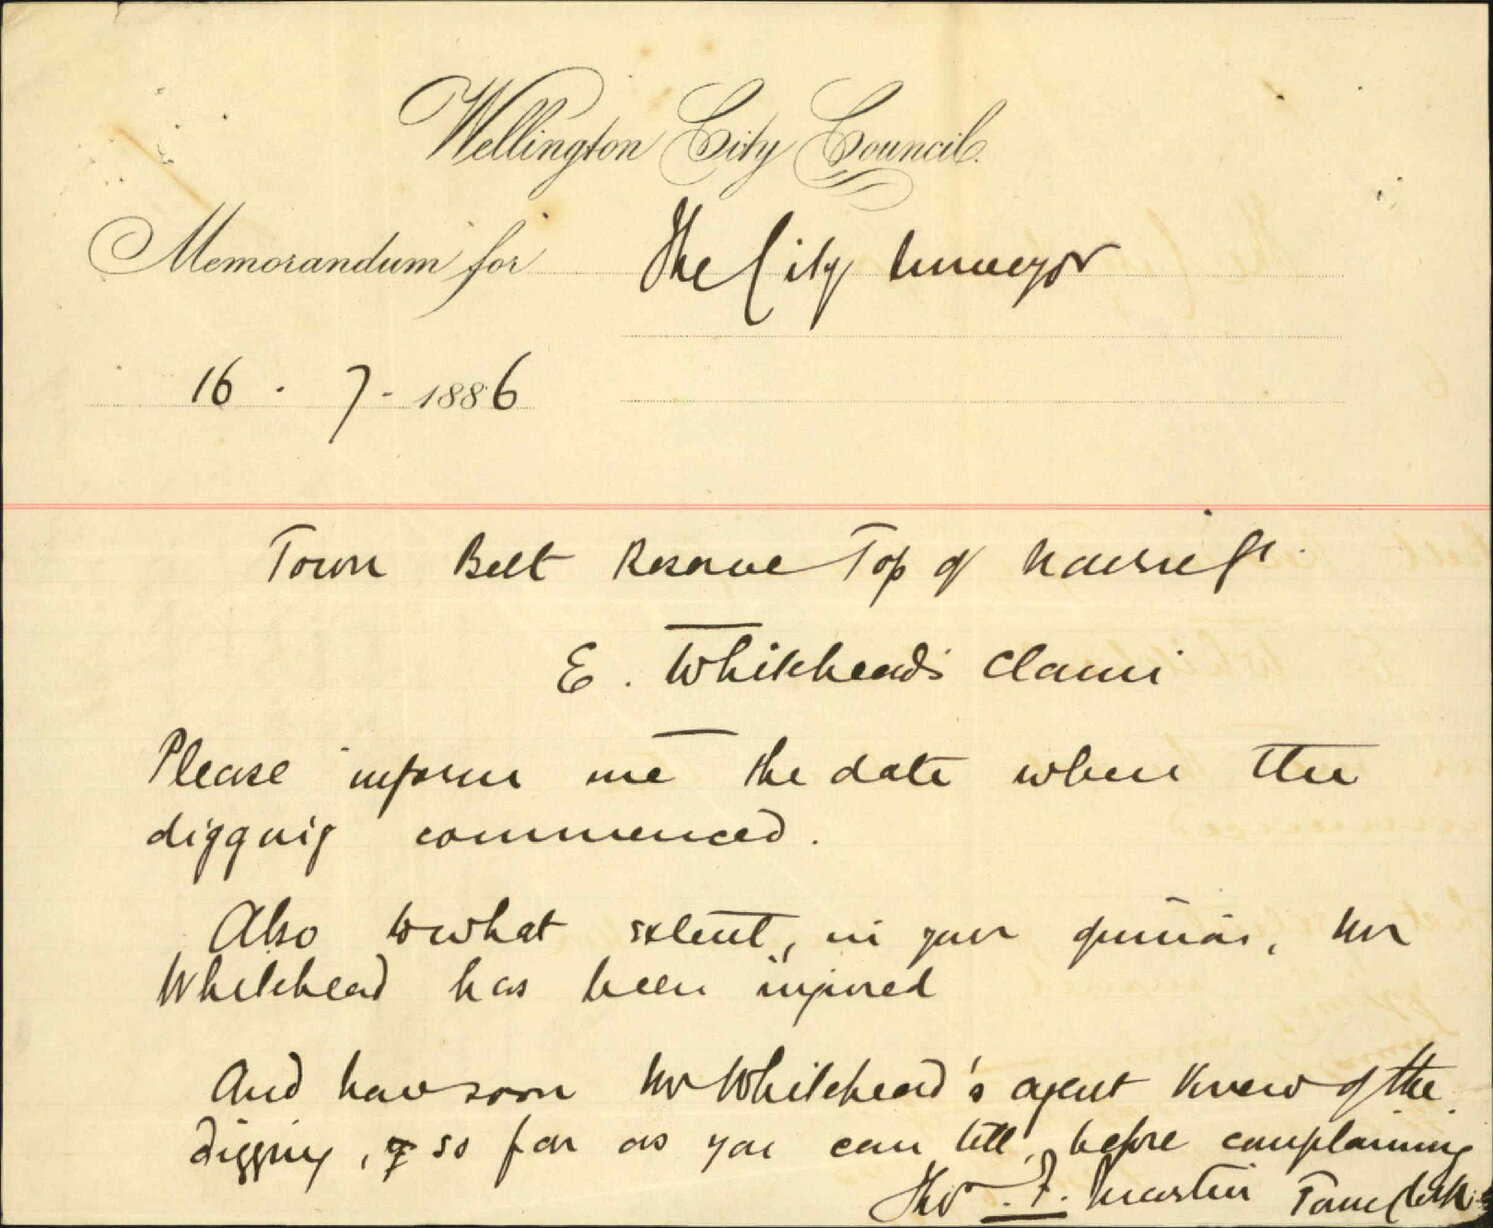 Wellington City Council.
Memorandum for The City Surveyor
16 . 7 - 1886
Town Belt Reserve Top of St.
E. Whitehead's Claim
Please inform me the date when the
digging commenced.
Also to what extent, in your opinion, Mr
Whitehead has been injured
And how soon Mr Whitehead's agent knew of the
digging, & so far as you can tell, before complaining
Thos. F. Martin Town Clerk